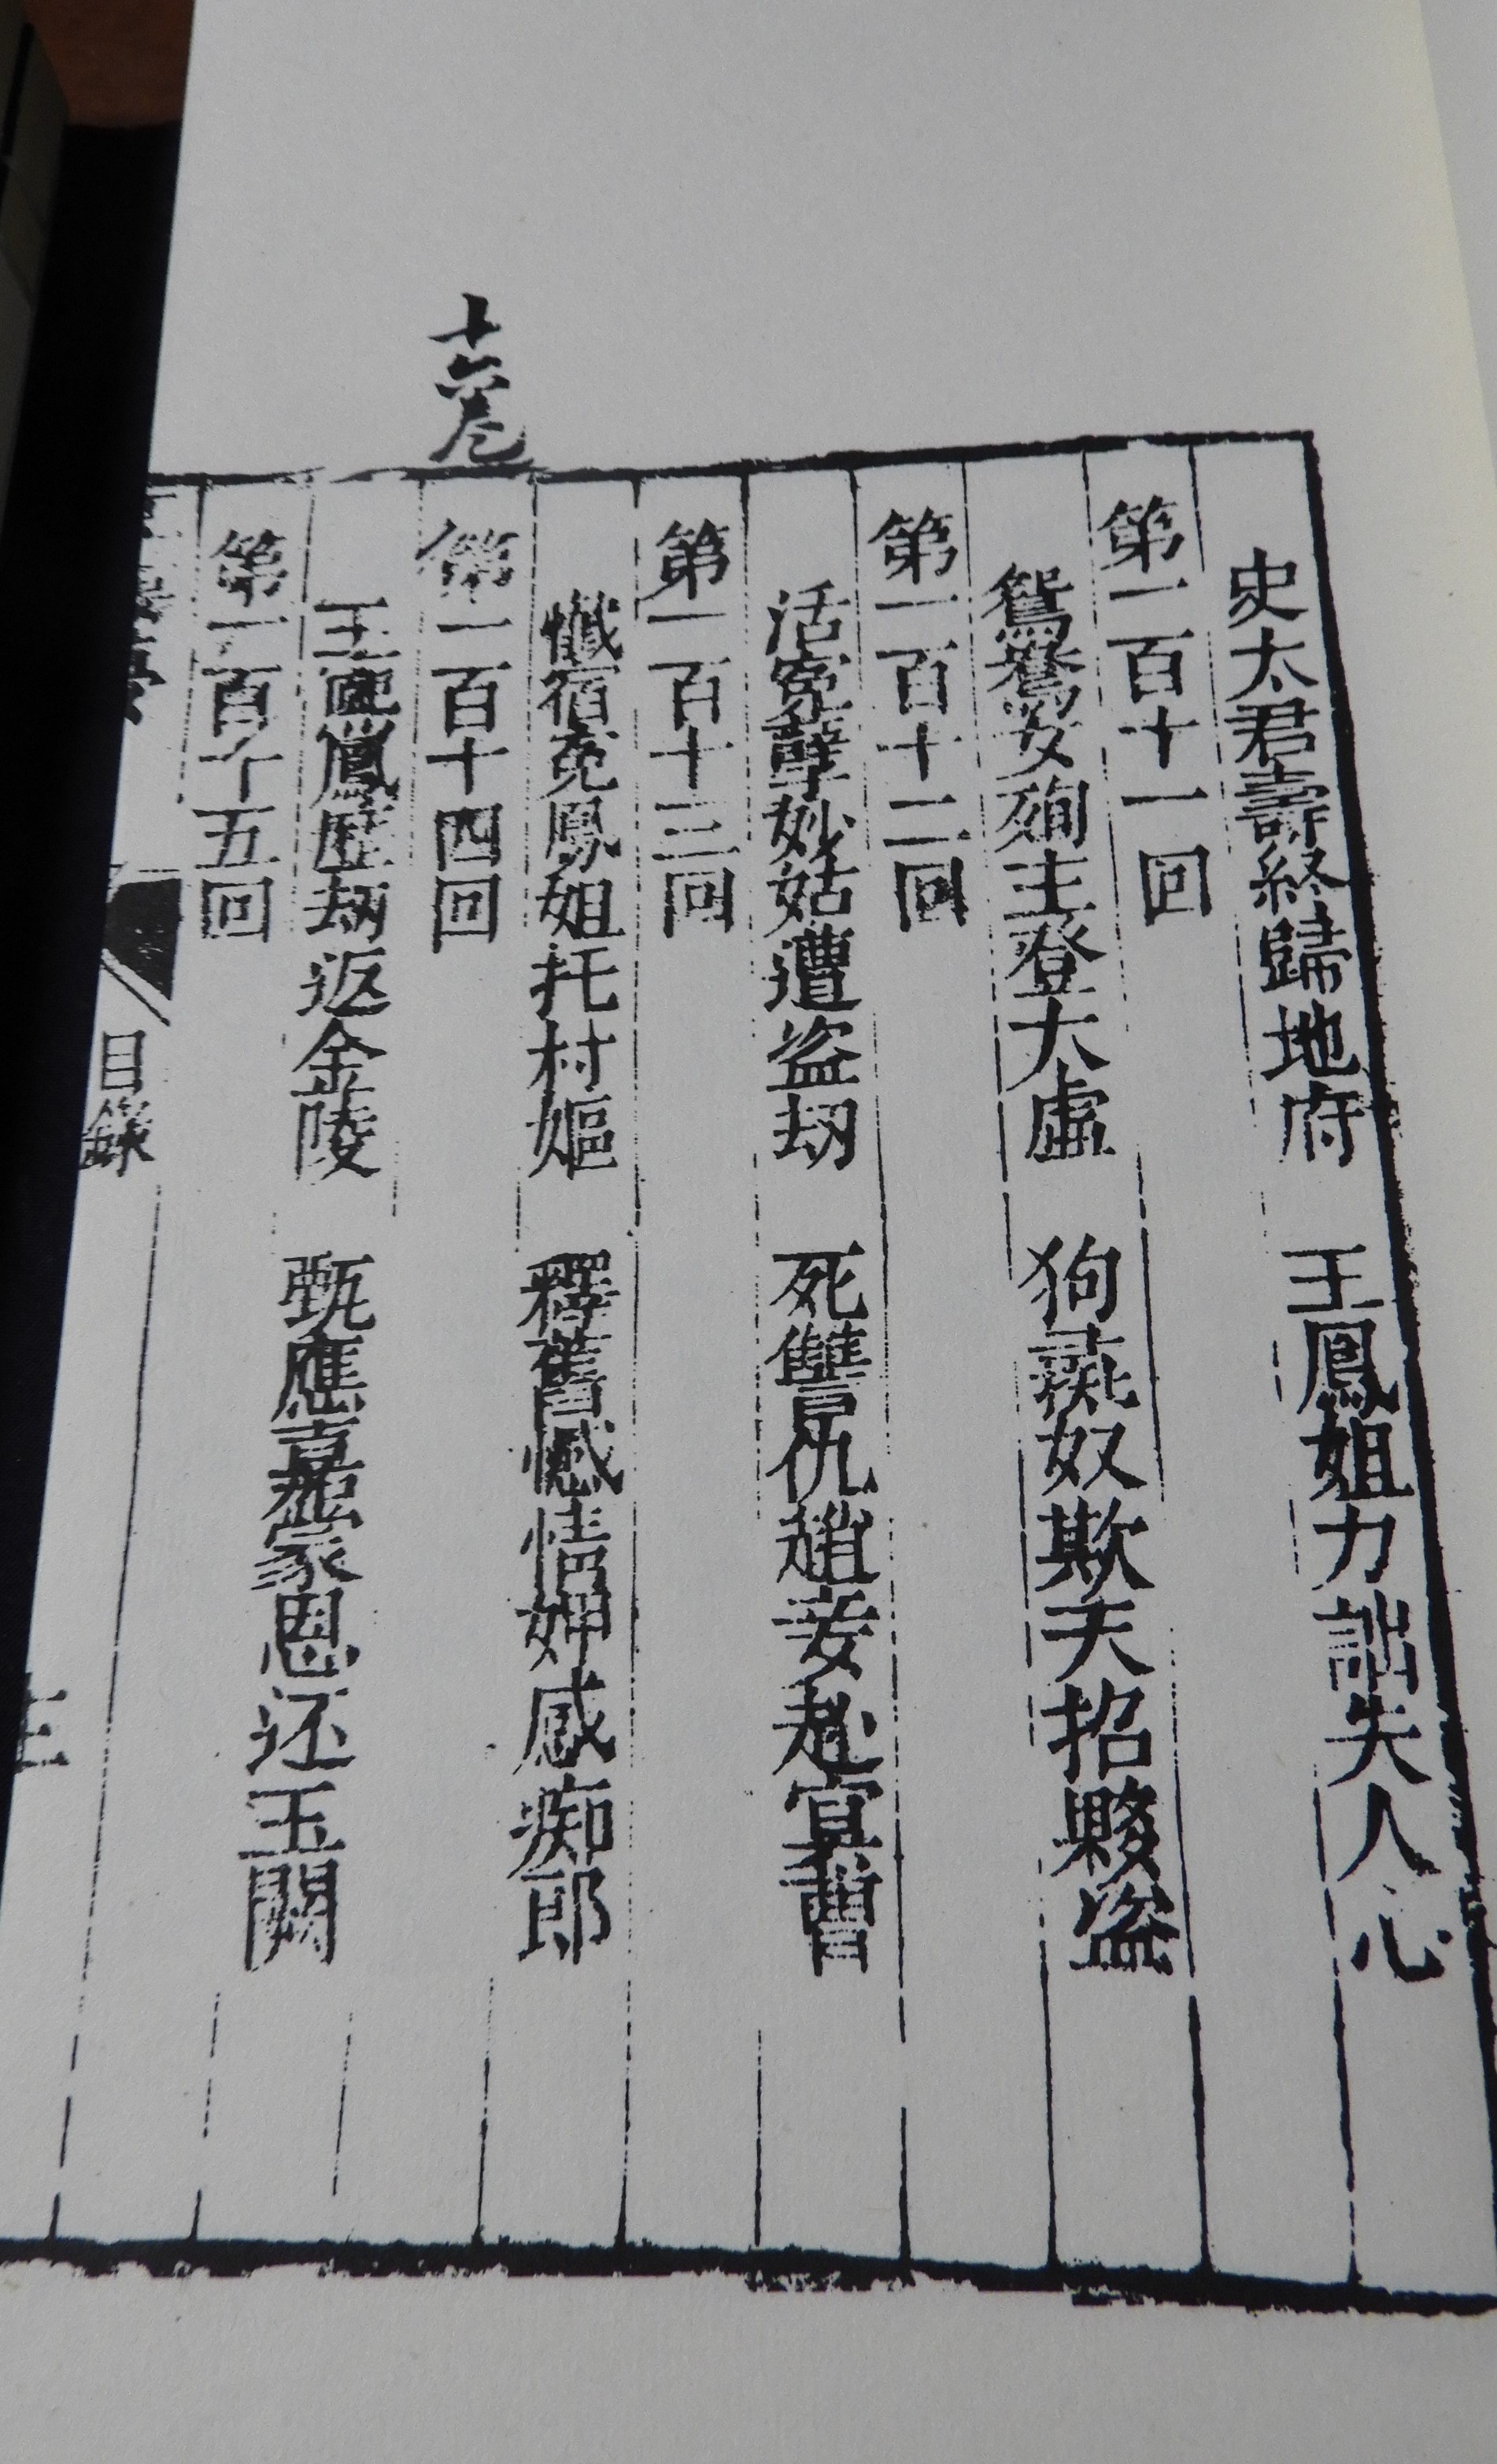 史太君壽終歸地府　王鳳姐力詘失人心
第一百十一回
鴛鴦女殉主登太虛　狗彘奴欺天招夥盜
第一百十二回
活寃孽妙姑遭盜劫　死讐仇趙妾赴冥曹
第一百十三回
懺宿寃鳳姐托村嫗　釋舊憾情婢感痴郎
十六卷
第一百十四回
王熙鳳歷劫返金陵　甄應嘉蒙恩还玉闕
第一百十五回
目錄